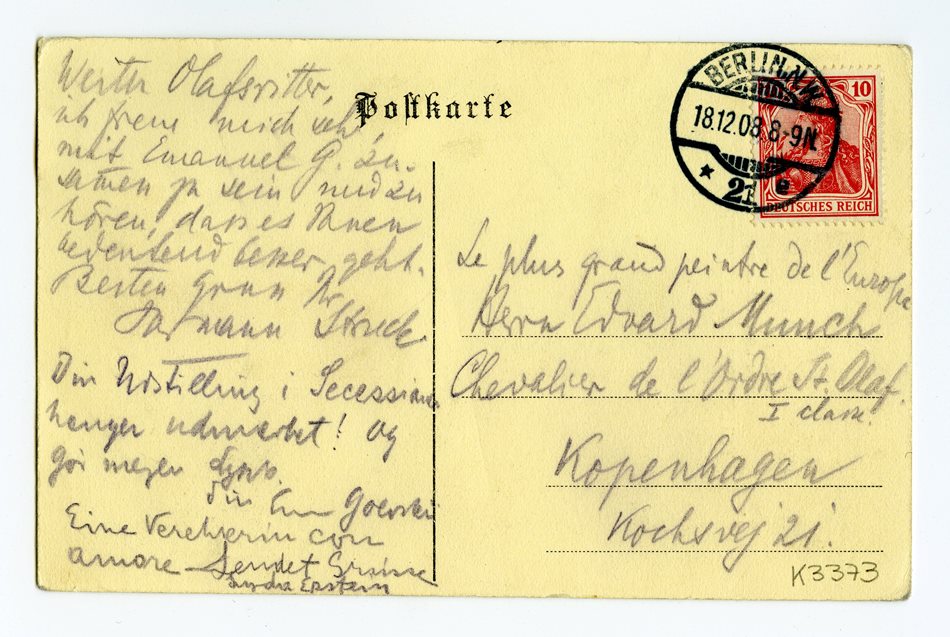 Werter Olafsritter,
ich freue mich sehr,
mit Emanuel G. zu-
samen zu sein und zu
hören, dass es Ihnen
bedeutend besser geht.
Besten Gruss Ihr
Hermann Struck
Din Udstilling i Secessionen
hænger udmærket! og
gör megen
din Em Goldstein
Eine Verehrerin con
amore sendet Grüsse
Epstein
Postkarte
BERLIN.N.W.
18.12.08.8-9N.
* 21 e
10
DEUTSCHES REICH
Le plus grand peintre de l'Europe
Herrn Edvard Munch
Chevalier de l'Ordre St. Olaf.
I class.
Kopenhagen
Kochsvej 21.
K3373